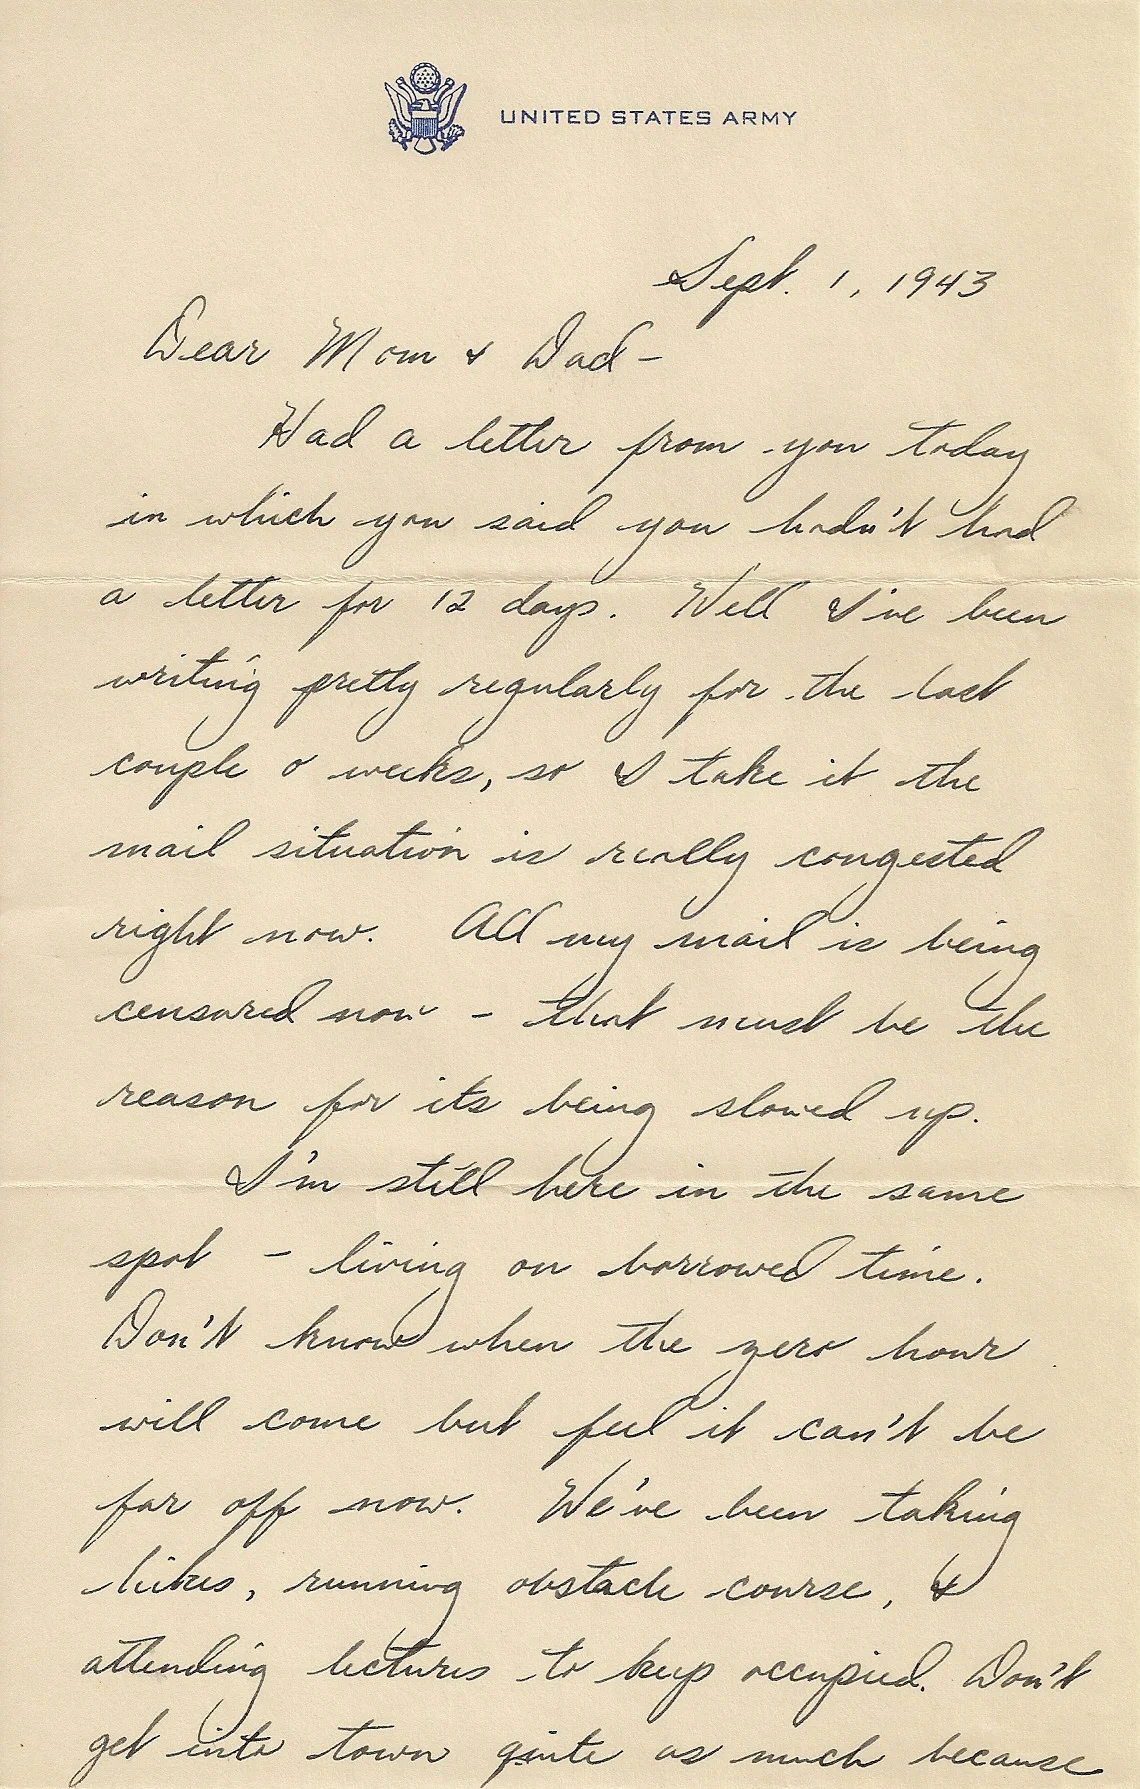 UNITED STATES ARMY
Sept. 1, 1943
Dear Mom & Dad –
Had a letter from you today
in which you said you hadn't had
a letter for 12 days. Well I've been
writing pretty regularly for the last
couple o weeks, so I take it the
mail situation is really congested
right now. All my mail is being
censored now – that must be the
reason for its being slowed up.
I'm still here in the same
spot – living on borrowed time.
Don't know when the zero hour
will come but feel it can't be
far off now. We've been taking
hikes, running obstacle course, &
attending lectures to keep occupied. Don't
get into town quite as much because